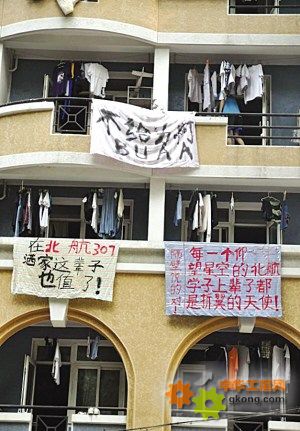 不给力啊
BUAA
在北航307
洒家这辈子
也值了!
每一个仰
望星空的北航
学子上辈子都
是折翼的天使!
中华工控网
gkong.com